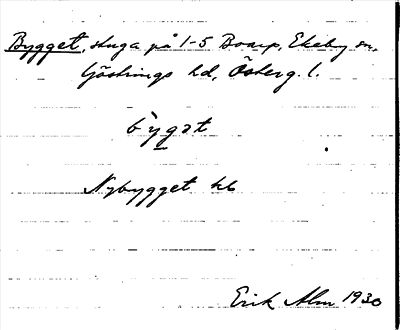 Bygget, stuga på 1-5 Boarp, Ekeby sn,
Göstrings hd, Österg. l.
bỳgət
Nybygget kb
Erik Alm 1930